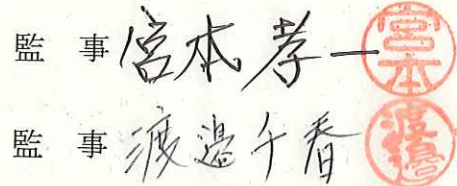 監事 宮本孝一 宮本
監事 渡邉午春 渡邉